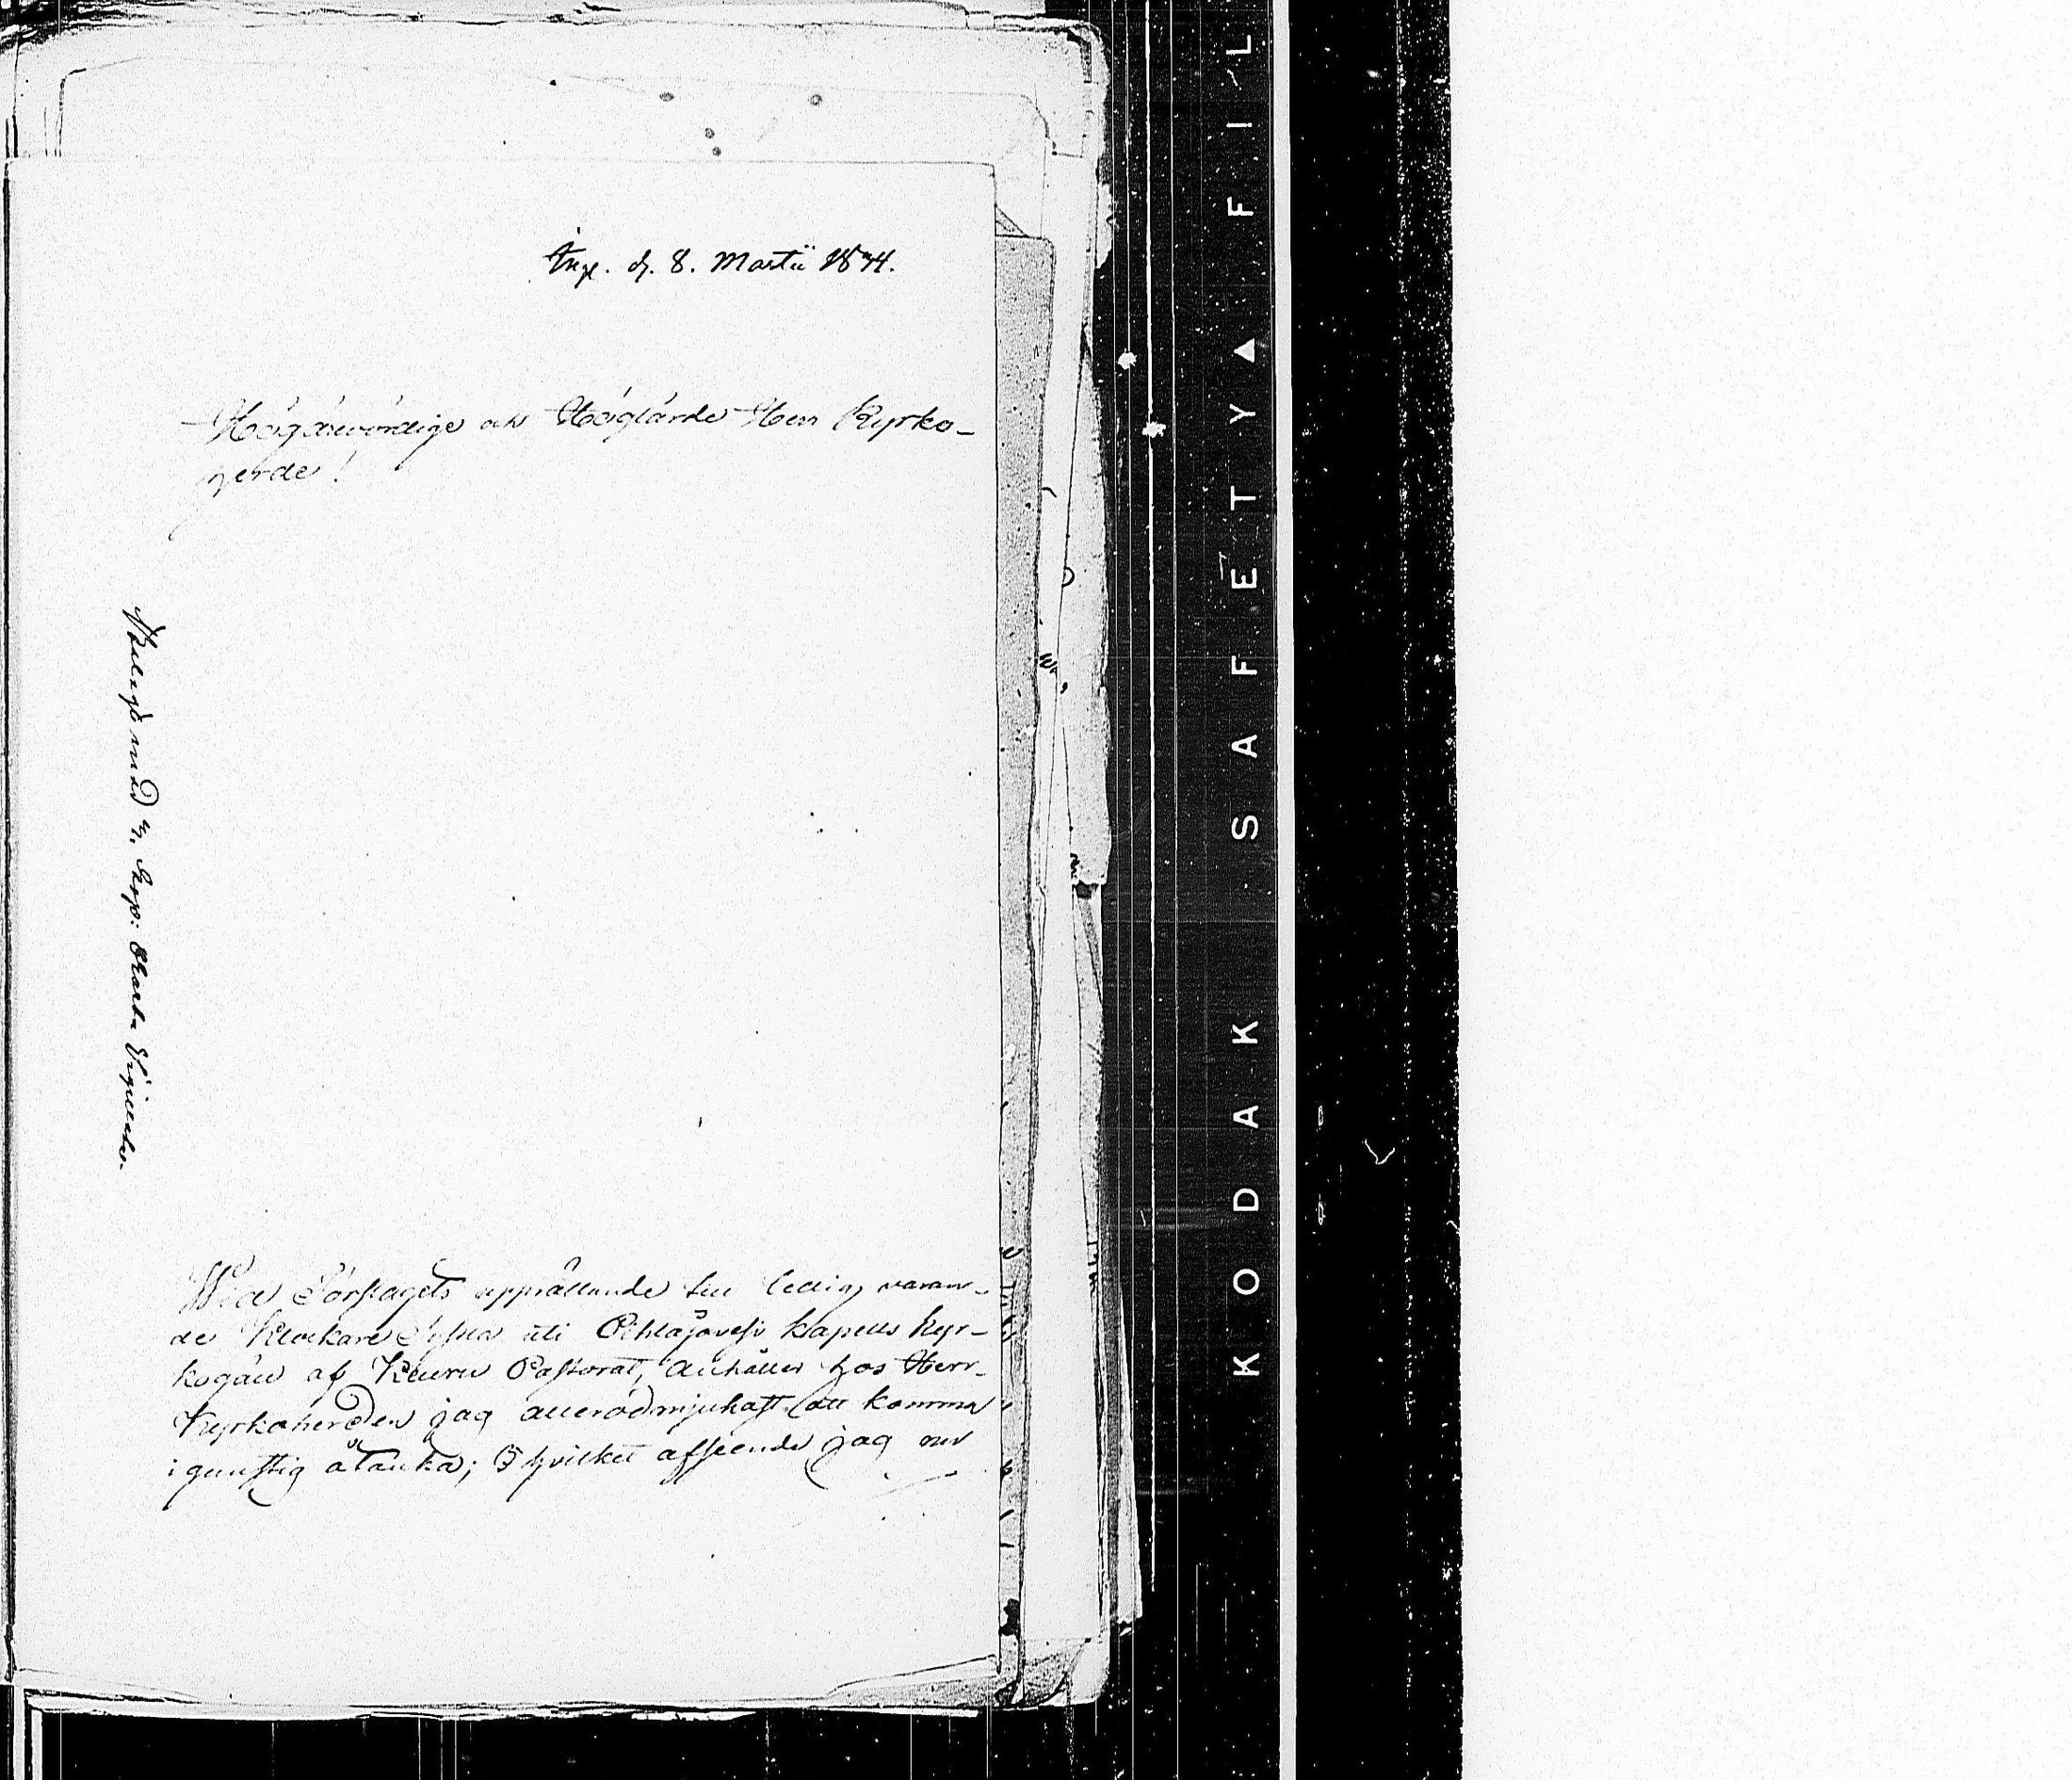 Ing. d. 8. Martii 1874.
Högärevördige och Höglärde Herr Kyrko-
herde!
Belagd med 4. Kop: Charta Sigillata.
Wid Förslagets upprättande till ledig varan-
de Klockare Syssla uti Pihlajavesi kapells kyr-
kogäll af Keuru Pastorat, anhåller hos Herr-
Kyrkoherden jag allerödmjukast att komma
i gunstig åtanka; I hvilket afseende jag
KODAK SAFETY▲FIL